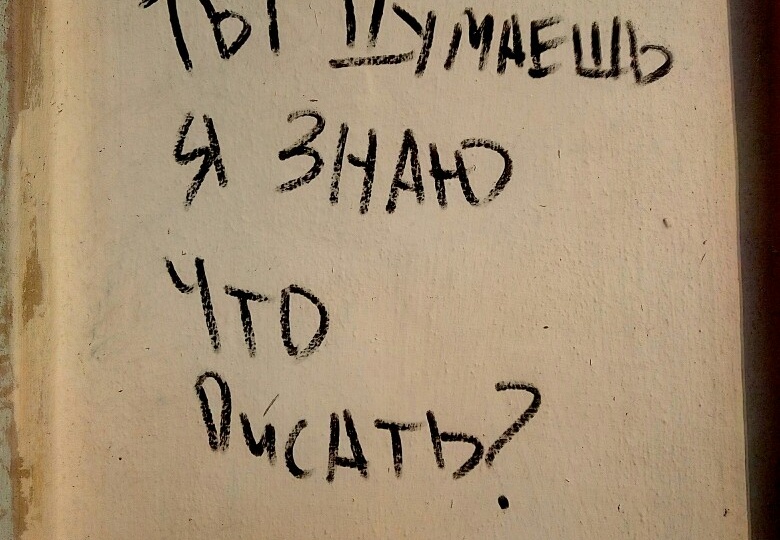 ТЫ ДУМАЕШЬ
Я ЗНАЮ
ЧТО
ПИСАТЬ?